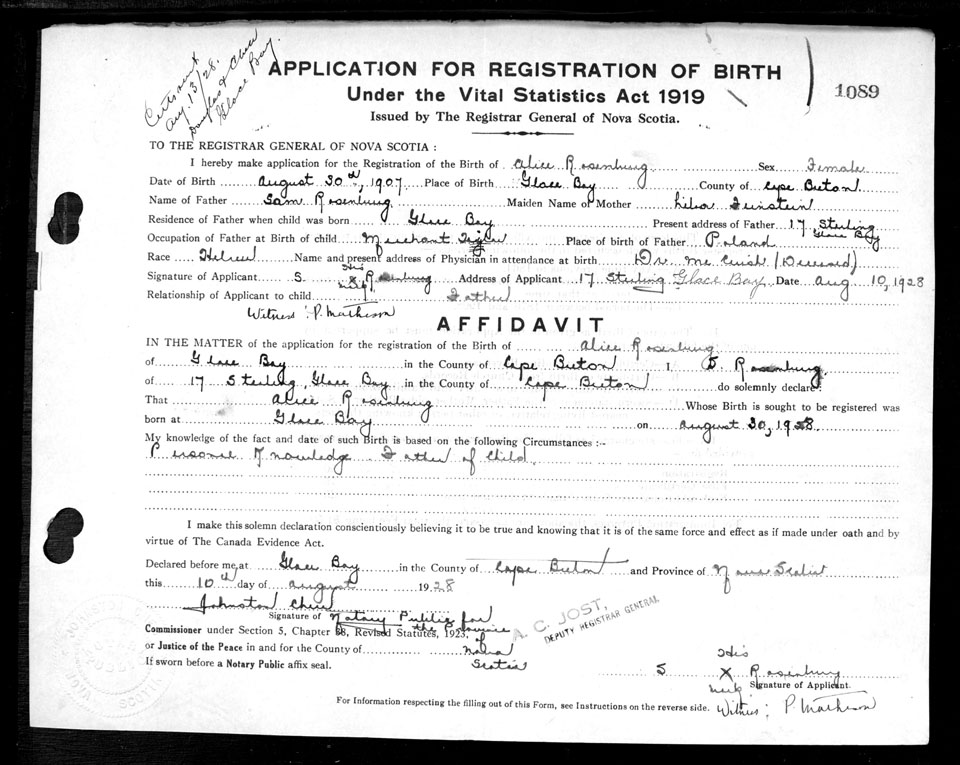 Cert sent
Aug. 13/28.
Douglas & Chew
Glace Bay.
APPLICATION FOR REGISTRATION OF BIRTH
Under the Vital Statistics Act 1919
Issued by The Registrar General of Nova Scotia.
1089
TO THE REGISTRAR GENERAL OF NOVA SCOTIA :
I hereby make application for the Registration of the Birth of Alice Rosenburg Sex Female
Date of Birth August 30, 1907 Place of Birth Glace Bay County of Cape Breton
Name of Father Sam Rosenburg Maiden Name of Mother Feinstein
Residence of Father when child was born Glace Bay Present address of Father 17 Sterling Glace Bay
Occupation of Father at Birth of child Merchant Place of birth of Father Poland
Race Hebrew Name and present address of Physician in attendance at birth Dr. (Deceased)
Signature of Applicant S. His X mark Rosenburg Address of Applicant 17 Sterling Glace Bay Date Aug 10, 1928
Relationship of Applicant to child Father
Witness: P. Matheson
AFFIDAVIT
IN THE MATTER of the application for the registration of the Birth of Alice Rosenburg
of Glace Bay in the County of Cape Breton I S. Rosenburg
of 17 Sterling, Glace Bay in the County of Cape Breton do solemnly declare:
That Alice Rosenburg Whose Birth is sought to be registered was
born at Glace Bay on August 30, 1928.
My knowledge of the fact and date of such Birth is based on the following Circumstances :-
Personal Knowledge Father of Child
I make this solemn declaration conscientiously believing it to be true and knowing that it is of the same force and effect as if made under oath and by
virtue of The Canada Evidence Act.
Declared before me, at Glace Bay in the County of Cape Breton and Province of Nova Scotia
this 10th day of August 1928
Johnston Chew
Signature of Notary Public for
Commissioner under Section 5, Chapter 38, Revised Statutes, 1923, the Province of
or Justice of the Peace in and for the County of Nova
If sworn before a Notary Public affix seal. Scotia
A. C. JOST,
DEPUTY REGISTRAR GENERAL
His
S X Rosenburg
mark Signature of Applicant.
For Information respecting the filling out of this Form, see Instructions on the reverse side. Witness: P. Matheson